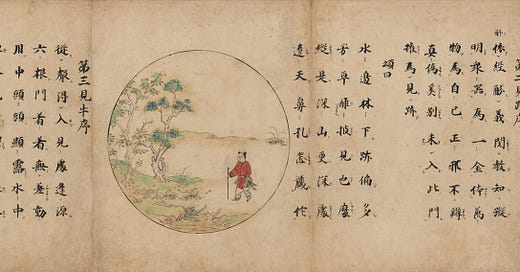 第二見跡序
依經解義閱教知蹤
明衆器為一金体萬
物為自己正邪不辨
真偽奚別未入此門
権為見跡
頌曰
水邊林下跡偏多
芳草離披見也麼
縱是深山更深處
遼天鼻孔怎藏佗
第三見牛序
從聲得入見處逢源
六根門着着無差動
用中頭頭顯露水中